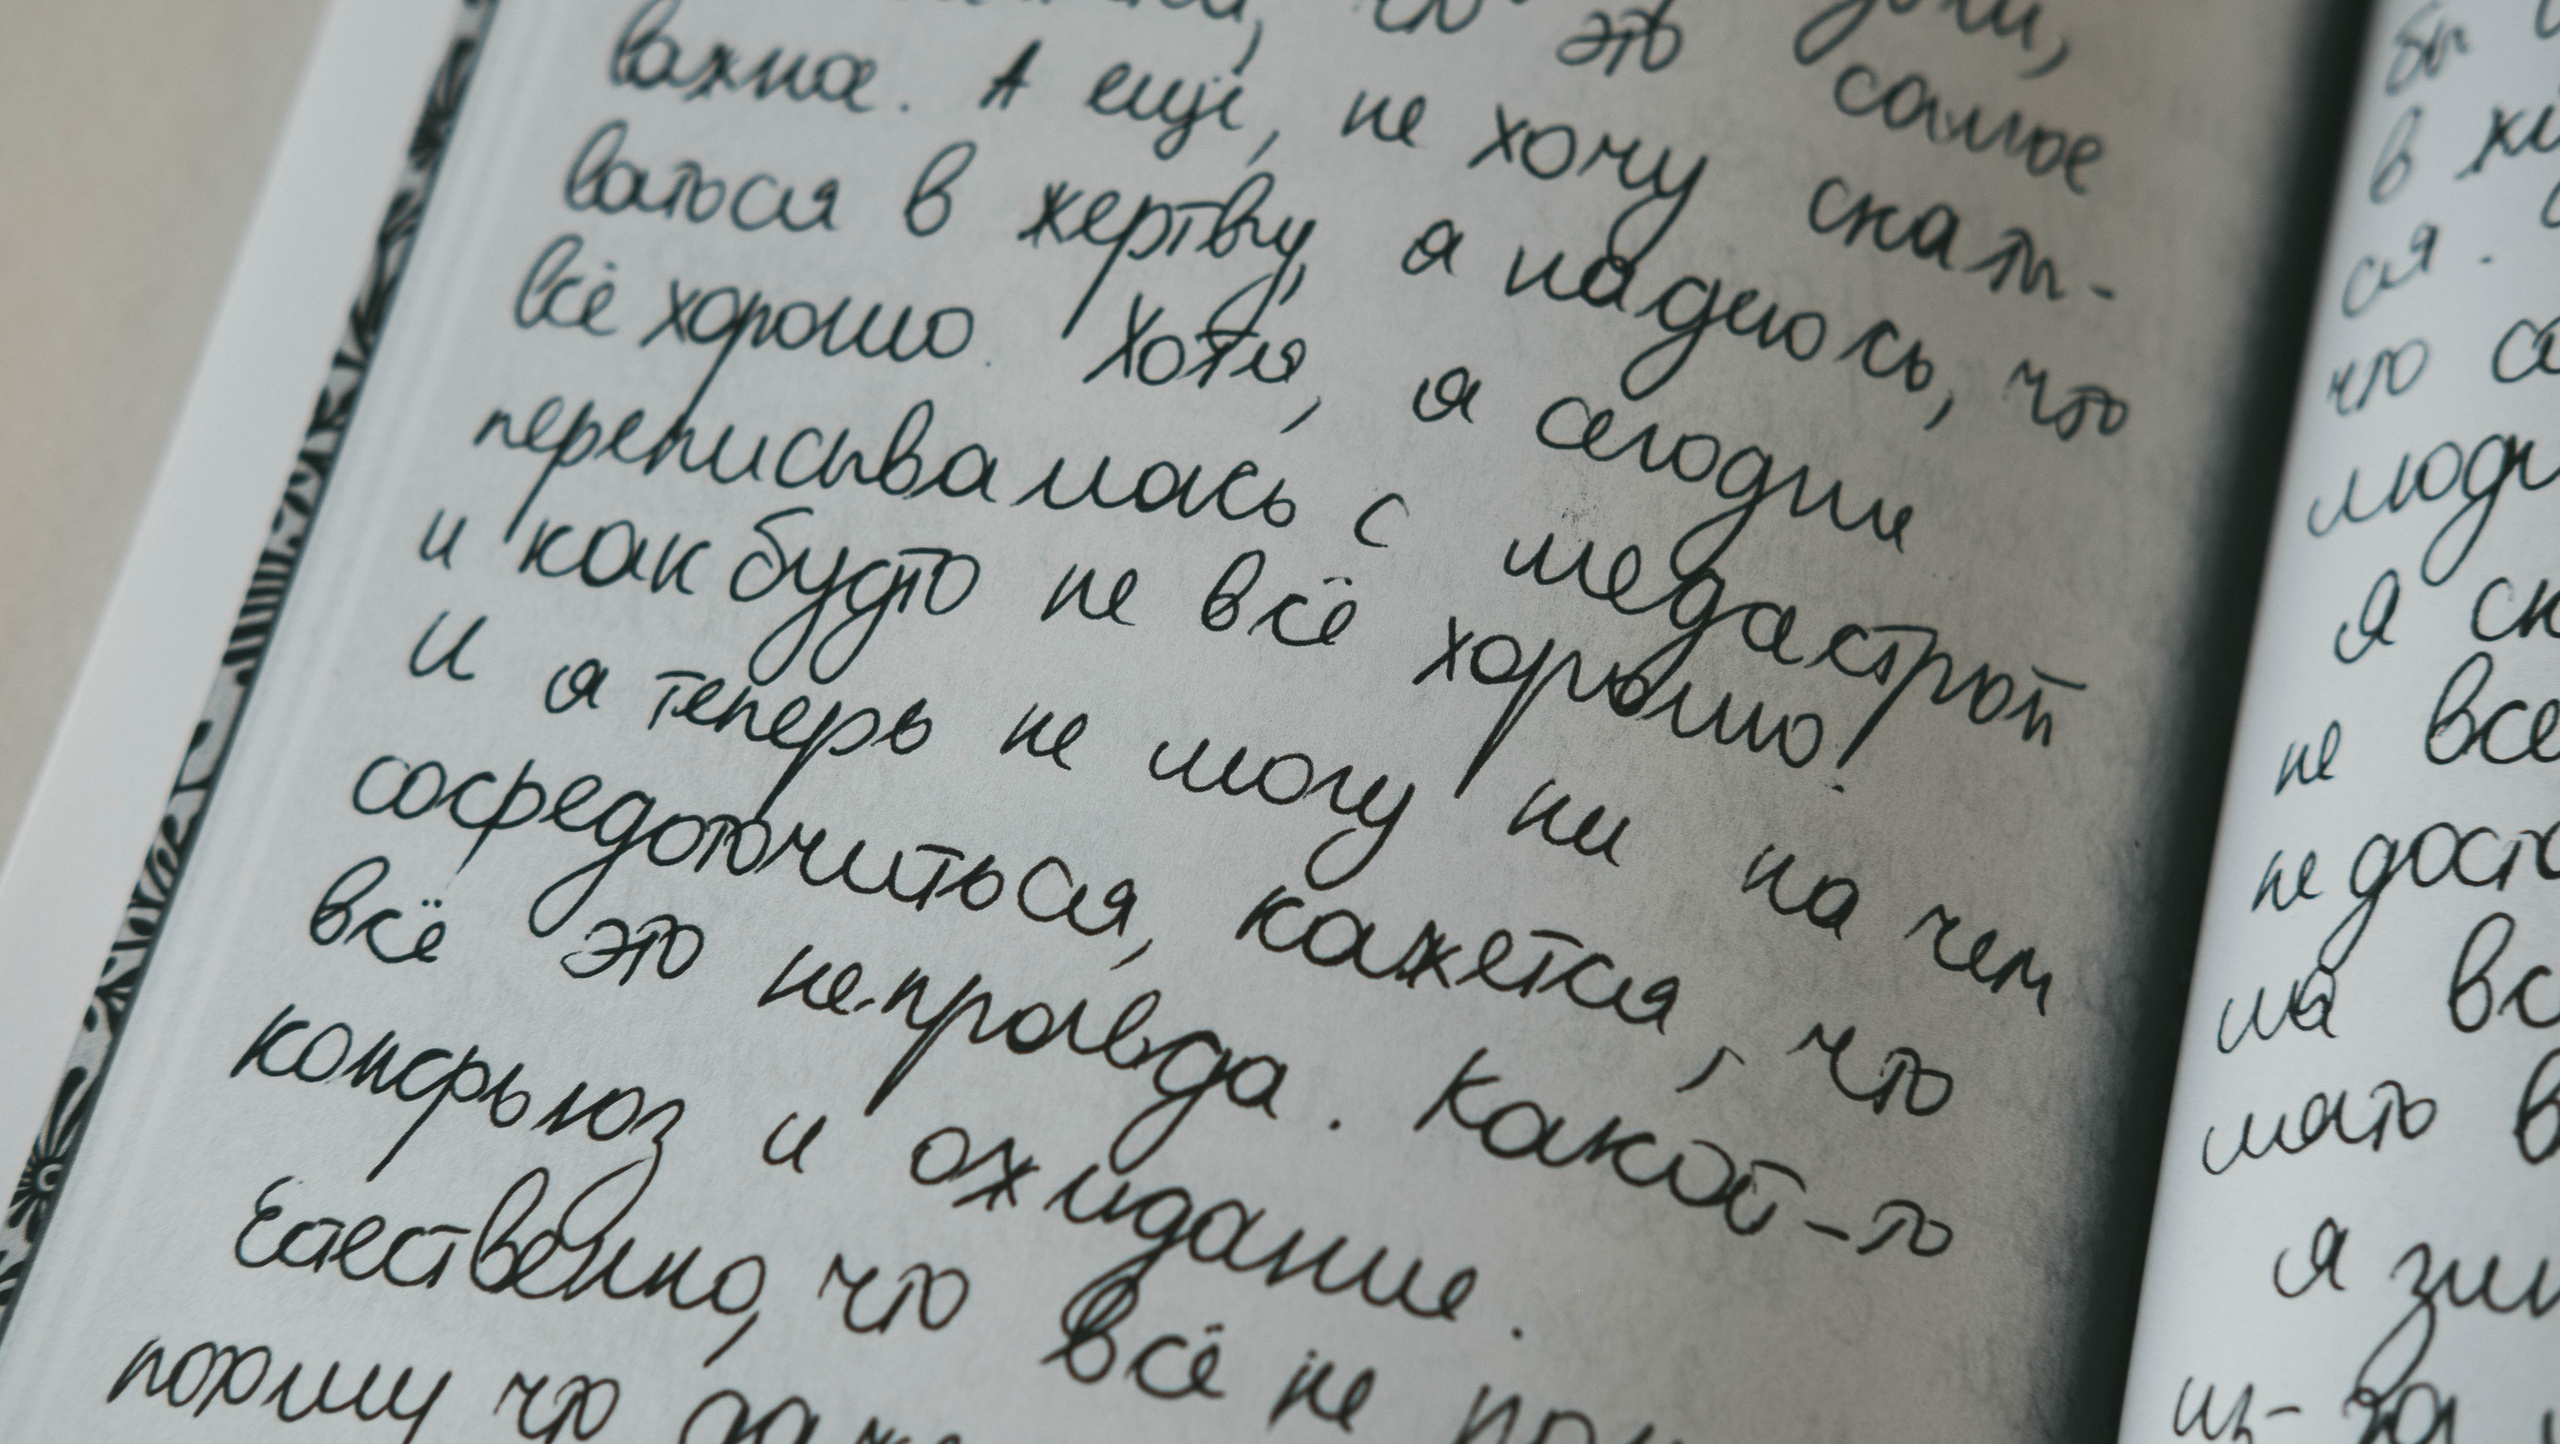 это самое
важное. А ещё, не хочу скаты-
ваться в жертву, а надеюсь, что
всё хорошо. Хотя, я сегодня
переписывалась с медсестрой
и как будто не всё хорошо!
И я теперь не могу ни на чем
сосредоточиться, кажется, что
всё это неправда. Какой-то
конфьюз и ожидание.
Естественно, что всё не
потому что
бы
в
ся.
что
я
не все
на
мать в
я
из-за